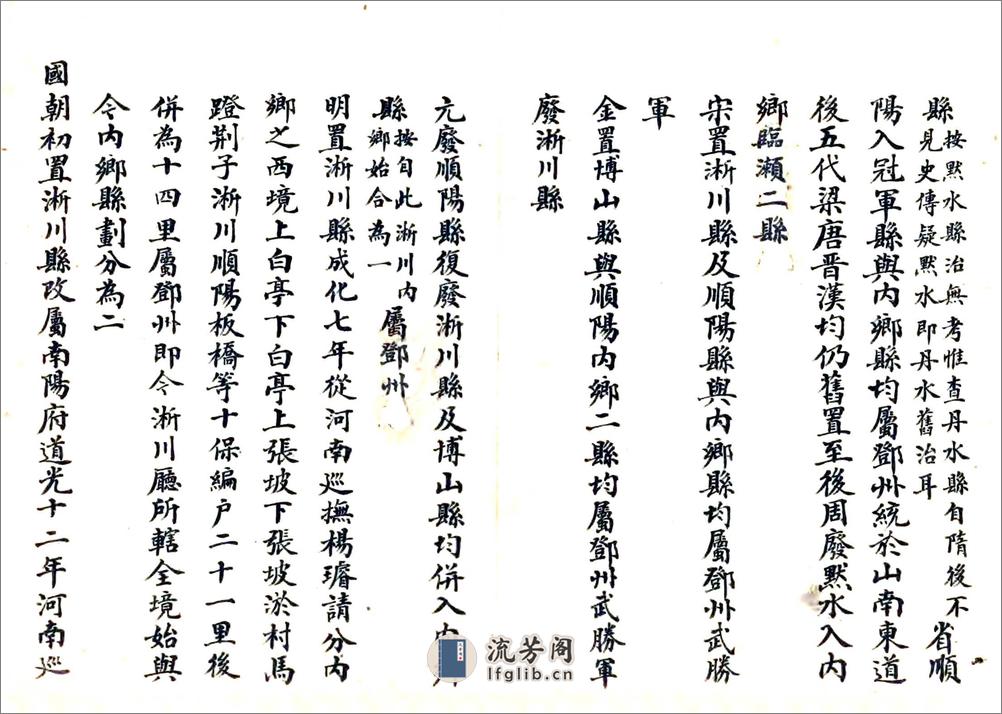 縣按黙水縣治無考惟查丹水縣自隋後不見史傳疑黙水即丹水舊治耳省順
陽入冠軍縣與内鄉縣均屬鄧州統於山南東道
後五代梁唐晋漢均仍舊置至後周廢黙水入内
鄉臨瀬二縣
宋置淅川縣及順陽縣與内鄉縣均屬鄧州武勝
軍
金置博山縣與順陽内鄉二縣均屬鄧州武勝軍
廢淅川縣
元廢順陽縣復廢淅川縣及博山縣均併入内
縣按自此淅川内鄉始合為一屬鄧州
明置淅川縣成化七年從河南巡撫楊璿請分内
鄉之西境上白亭下白亭上張坡下張坡淤村馬
蹬荆子淅川順陽板橋等十保編户二十一里後
併為十四里屬鄧州即今淅川廳所轄全境始與
今内鄉縣劃分為二
國朝初置淅川縣改屬南陽府道光十二年河南巡
流芳阁
lfglib.cn